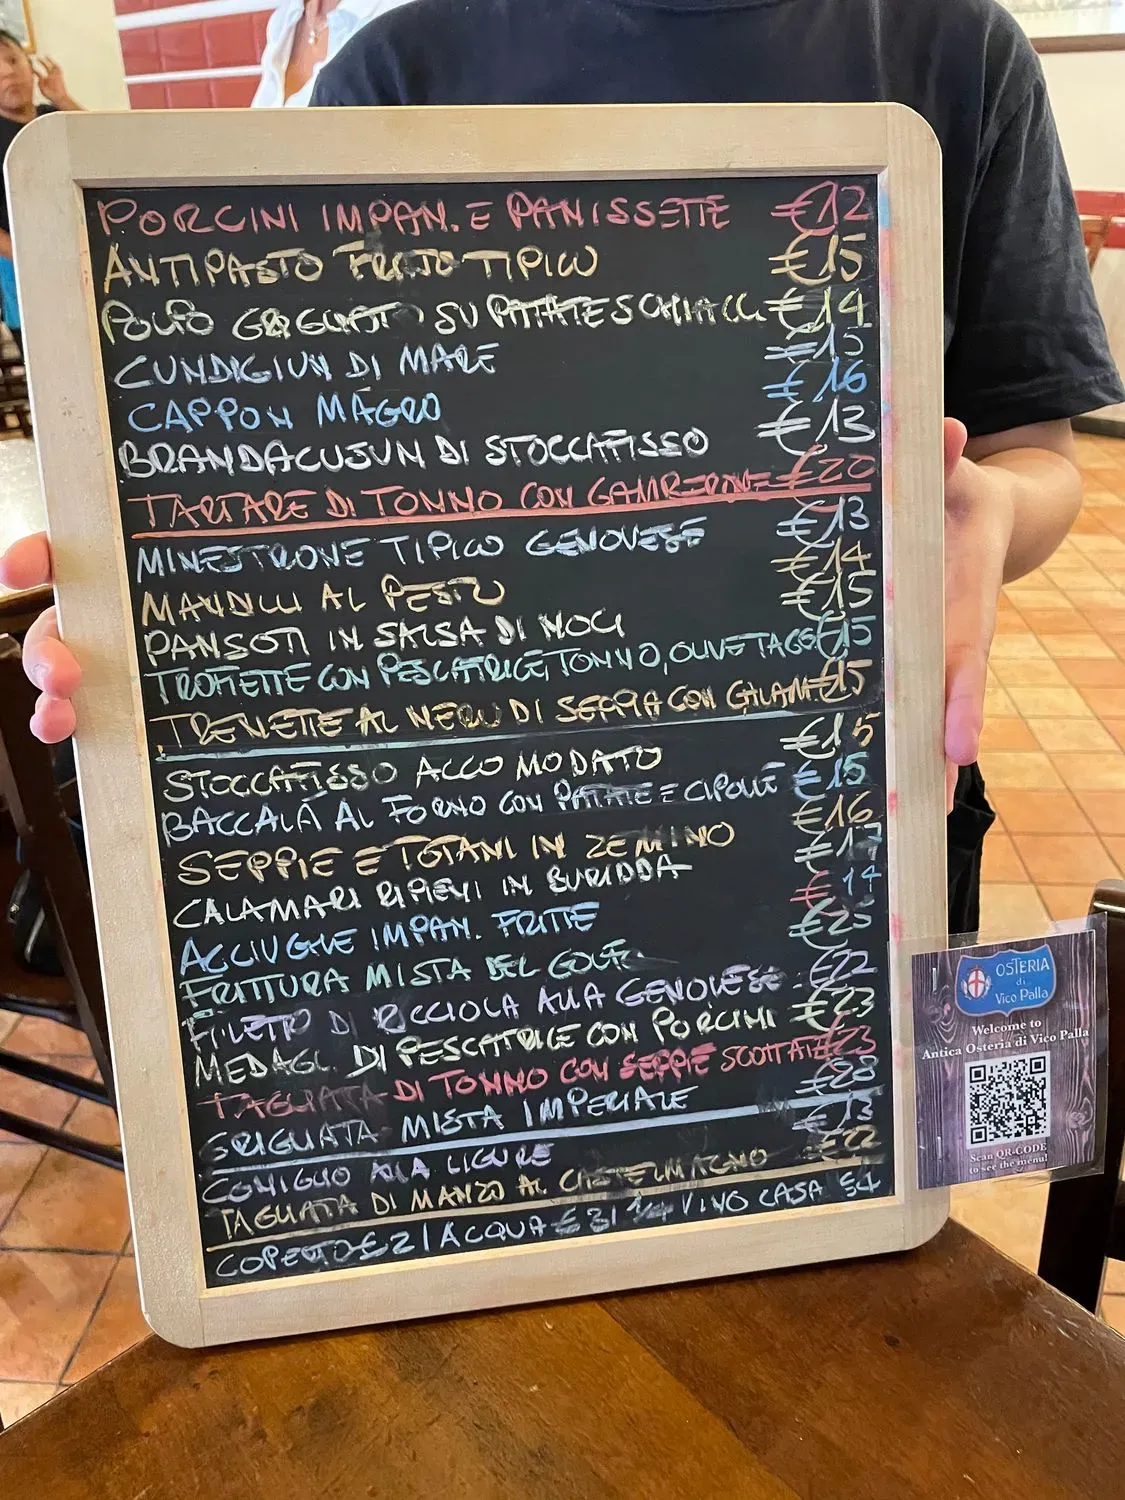 PORCINI IMPAN. E PANISSETTE €12
ANTIPASTO FRITTO TIPICO €15
POLPO GRIGLIATO SU PATATE SCHIACC. €14
CUNDIGIUN DI MARE €15
CAPPON MAGRO €16
BRANDACUJUN DI STOCCAFISSO €13
TARTARE DI TONNO CON GAMBERONE €20
MINESTRONE TIPICO GENOVESE €13
MANDILLI AL PESTO €14
PANSOTI IN SALSA DI NOCI €15
TROFIETTE CON PESCATRICE TONNO, OLIVE TAGG €15
TRENETTE AL NERO DI SEPPIA CON CALAM €15
STOCCAFISSO ACCOMODATO €15
BACCALÀ AL FORNO CON PATATE E CIPOLLE €15
SEPPIE E TOTANI IN ZEMINO €16
CALAMARI RIPIENI IN BURIDDA €17
ACCIUGHE IMPAN. FRITTE €14
FRITTURA MISTA DEL GOLFO €25
FILETTO DI RICCIOLA ALLA GENOVESE €22
MEDAGL. DI PESCATRICE CON PORCINI €23
TAGLIATA DI TONNO CON SEPPIE SCOTTATE €23
GRIGLIATA MISTA IMPERIALE €28
CONIGLIO ALLA LIGURE €13
TAGLIATA DI MANZO AL CASTELMAGNO €22
COPERTO £2 / ACQUA € 3 / 1/4 VINO CASA 54
OSTERIA
di
Vico Palla
Welcome to
Antica Osteria di Vico Palla
Scan QR-CODE
to see the menu!